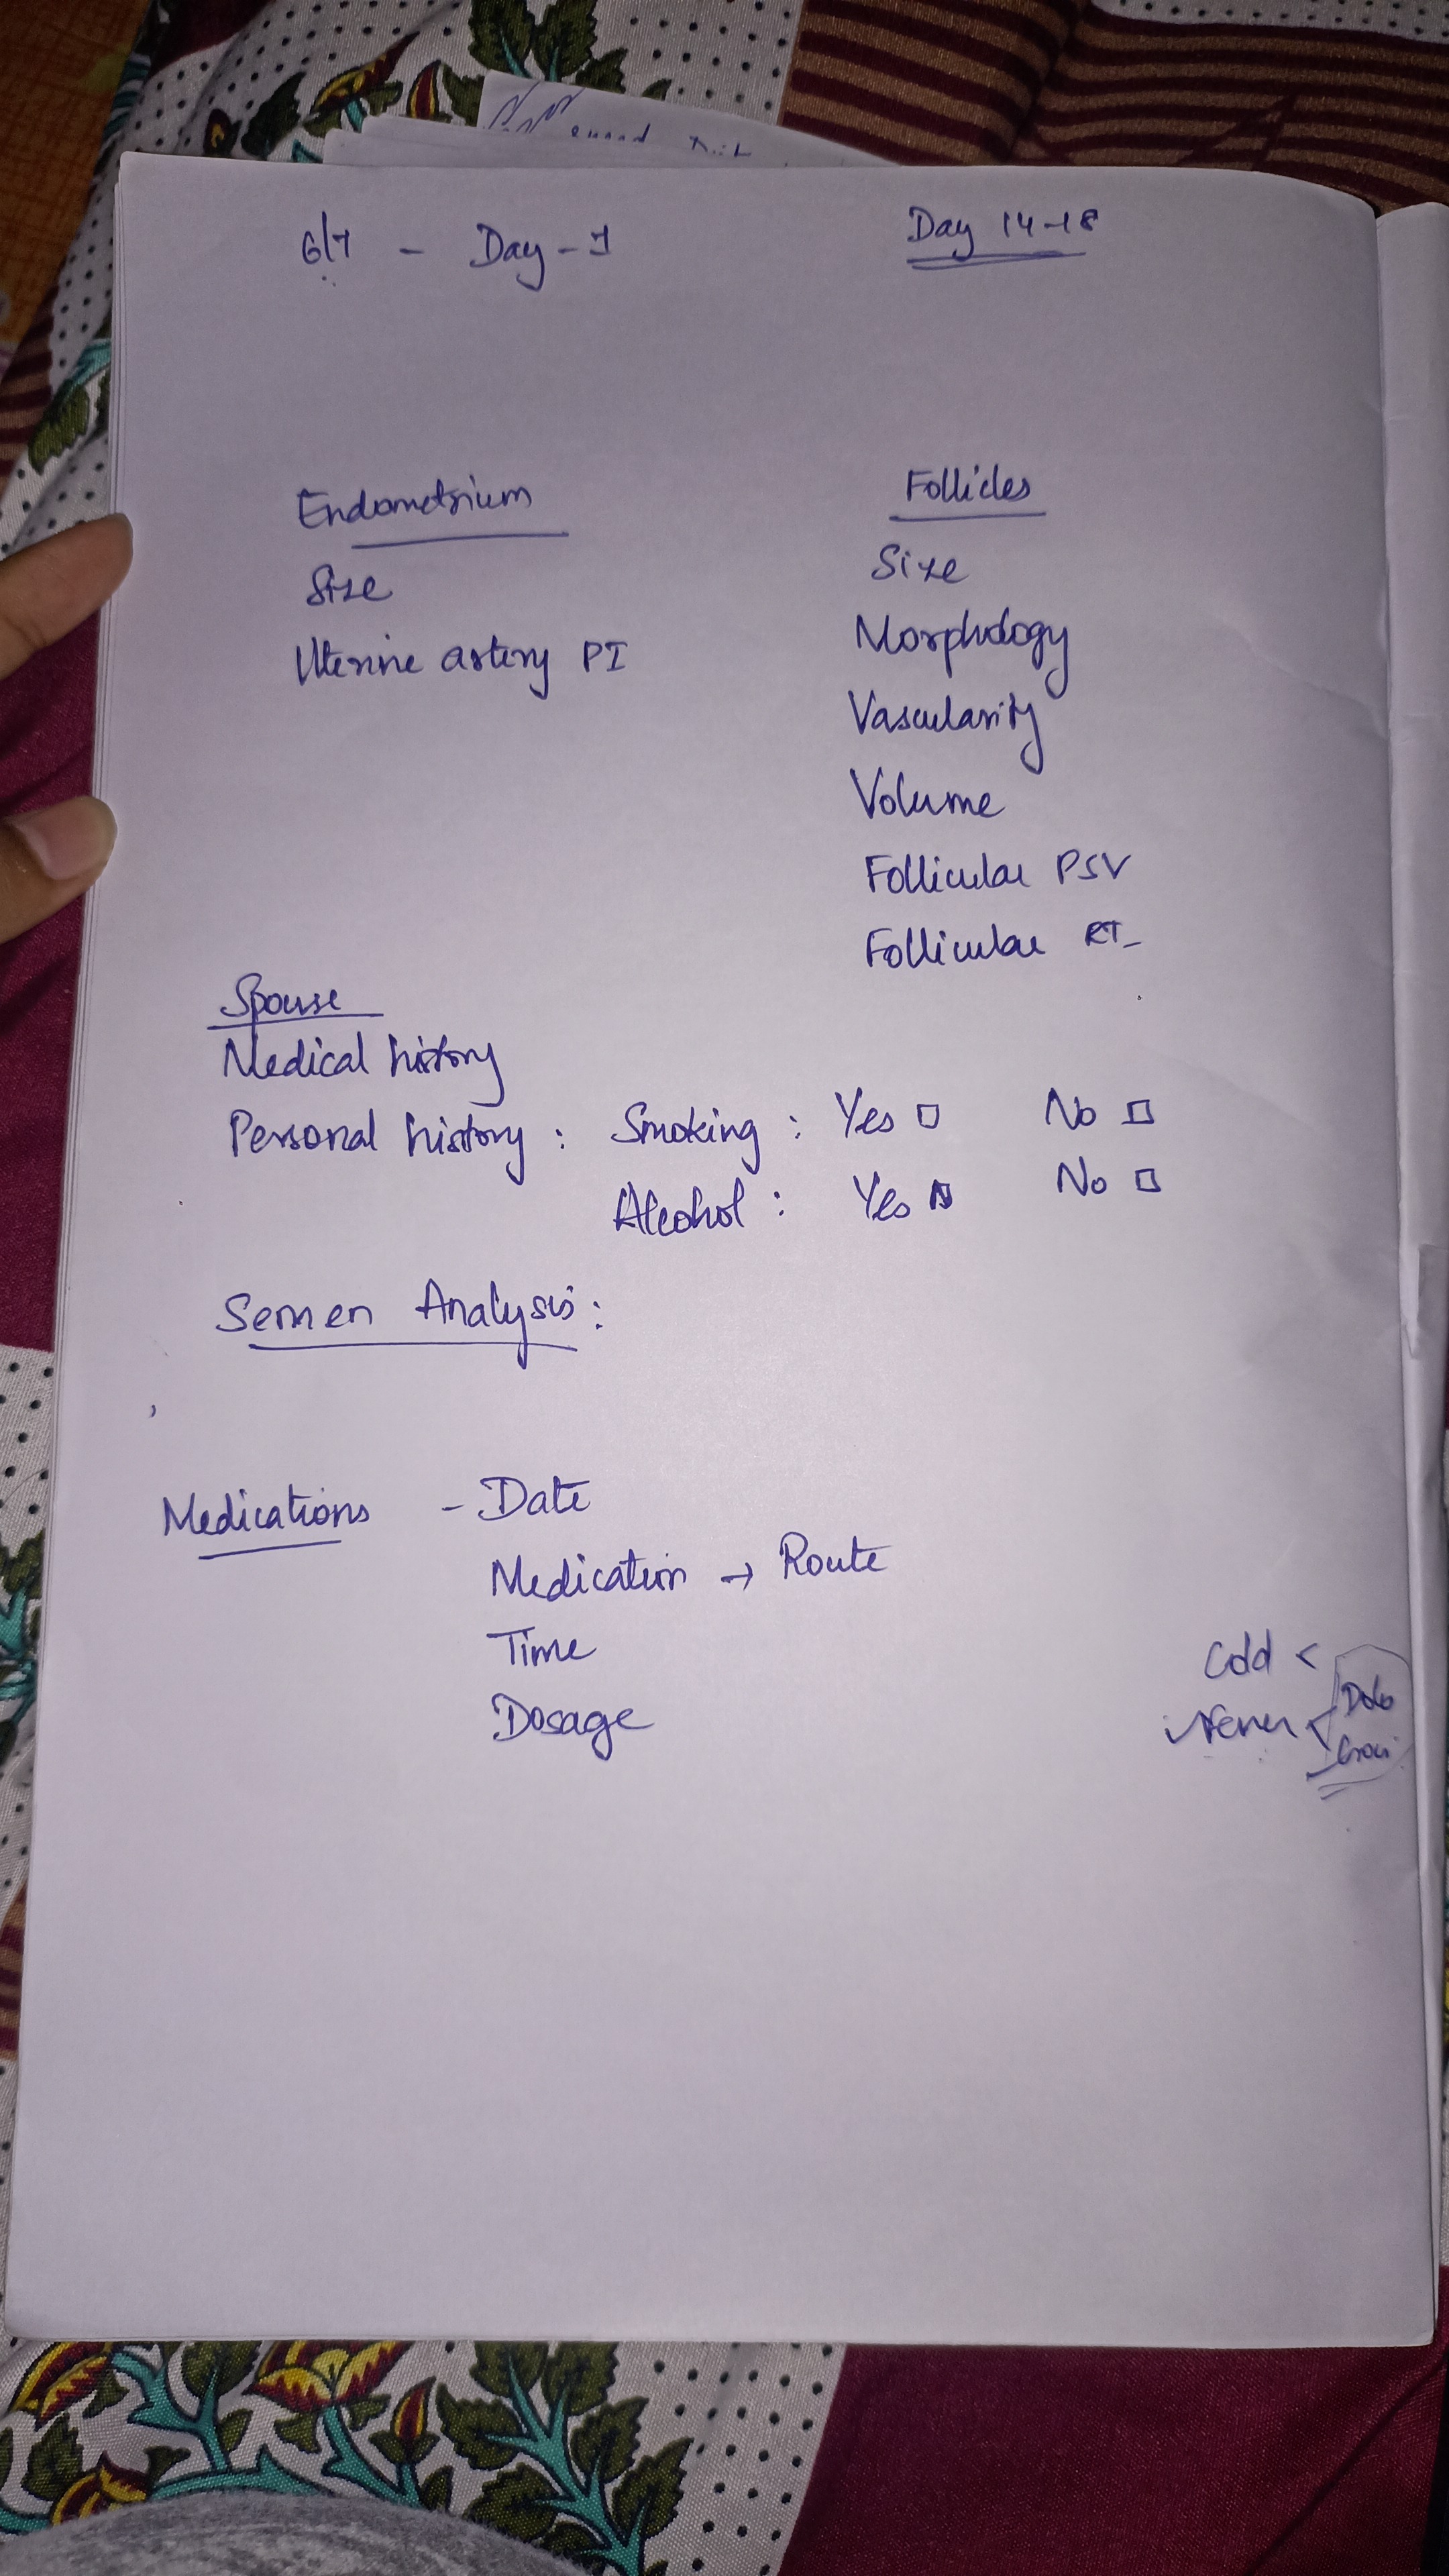 6/7 - Day - 1
Day 14-18
Endometrium
Size
Uterine artery PI
Follicles
Size
Morphology
Vascularity
Volume
Follicular PSV
Follicular
Spouse
Medical history
Personal history : Smoking : Yes □ No □
Alcohol : Yes □ No □
Semen Analysis :
Medications - Date
Medication → Route
Time
Dosage
Cold <
Dolo